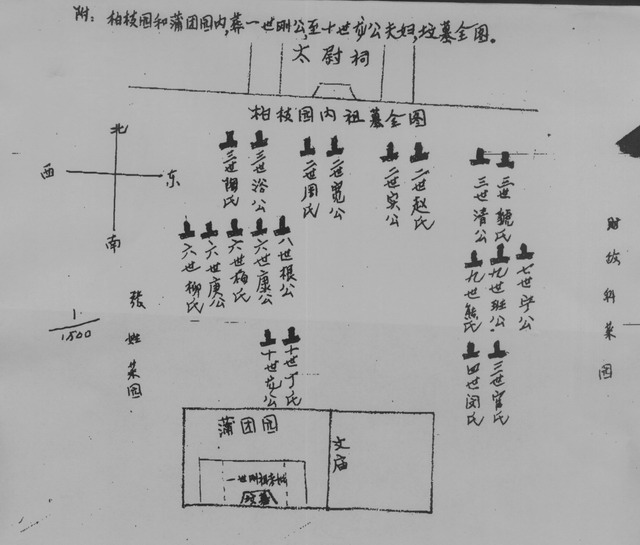 附：柏枝园和蒲团园内，葬一世刚公，至十世龙公夫妇，坟墓全图。
太尉祠
柏枝园内祖墓全图
北
西
东
南
1/1500
三世梅氏
三世浴公
二世周氏
二世宽公
二世实公
二世赵氏
三世清公
三世魏氏
六世柳氏
六世庚公
六世梅氏
六世康公
八世根公
九世熊氏
九世班公
七世宁公
十世龙公
十世丁氏
四世闵氏
三世官氏
张姓菜园
财政科菜园
蒲团园
文庙
一世刚祖